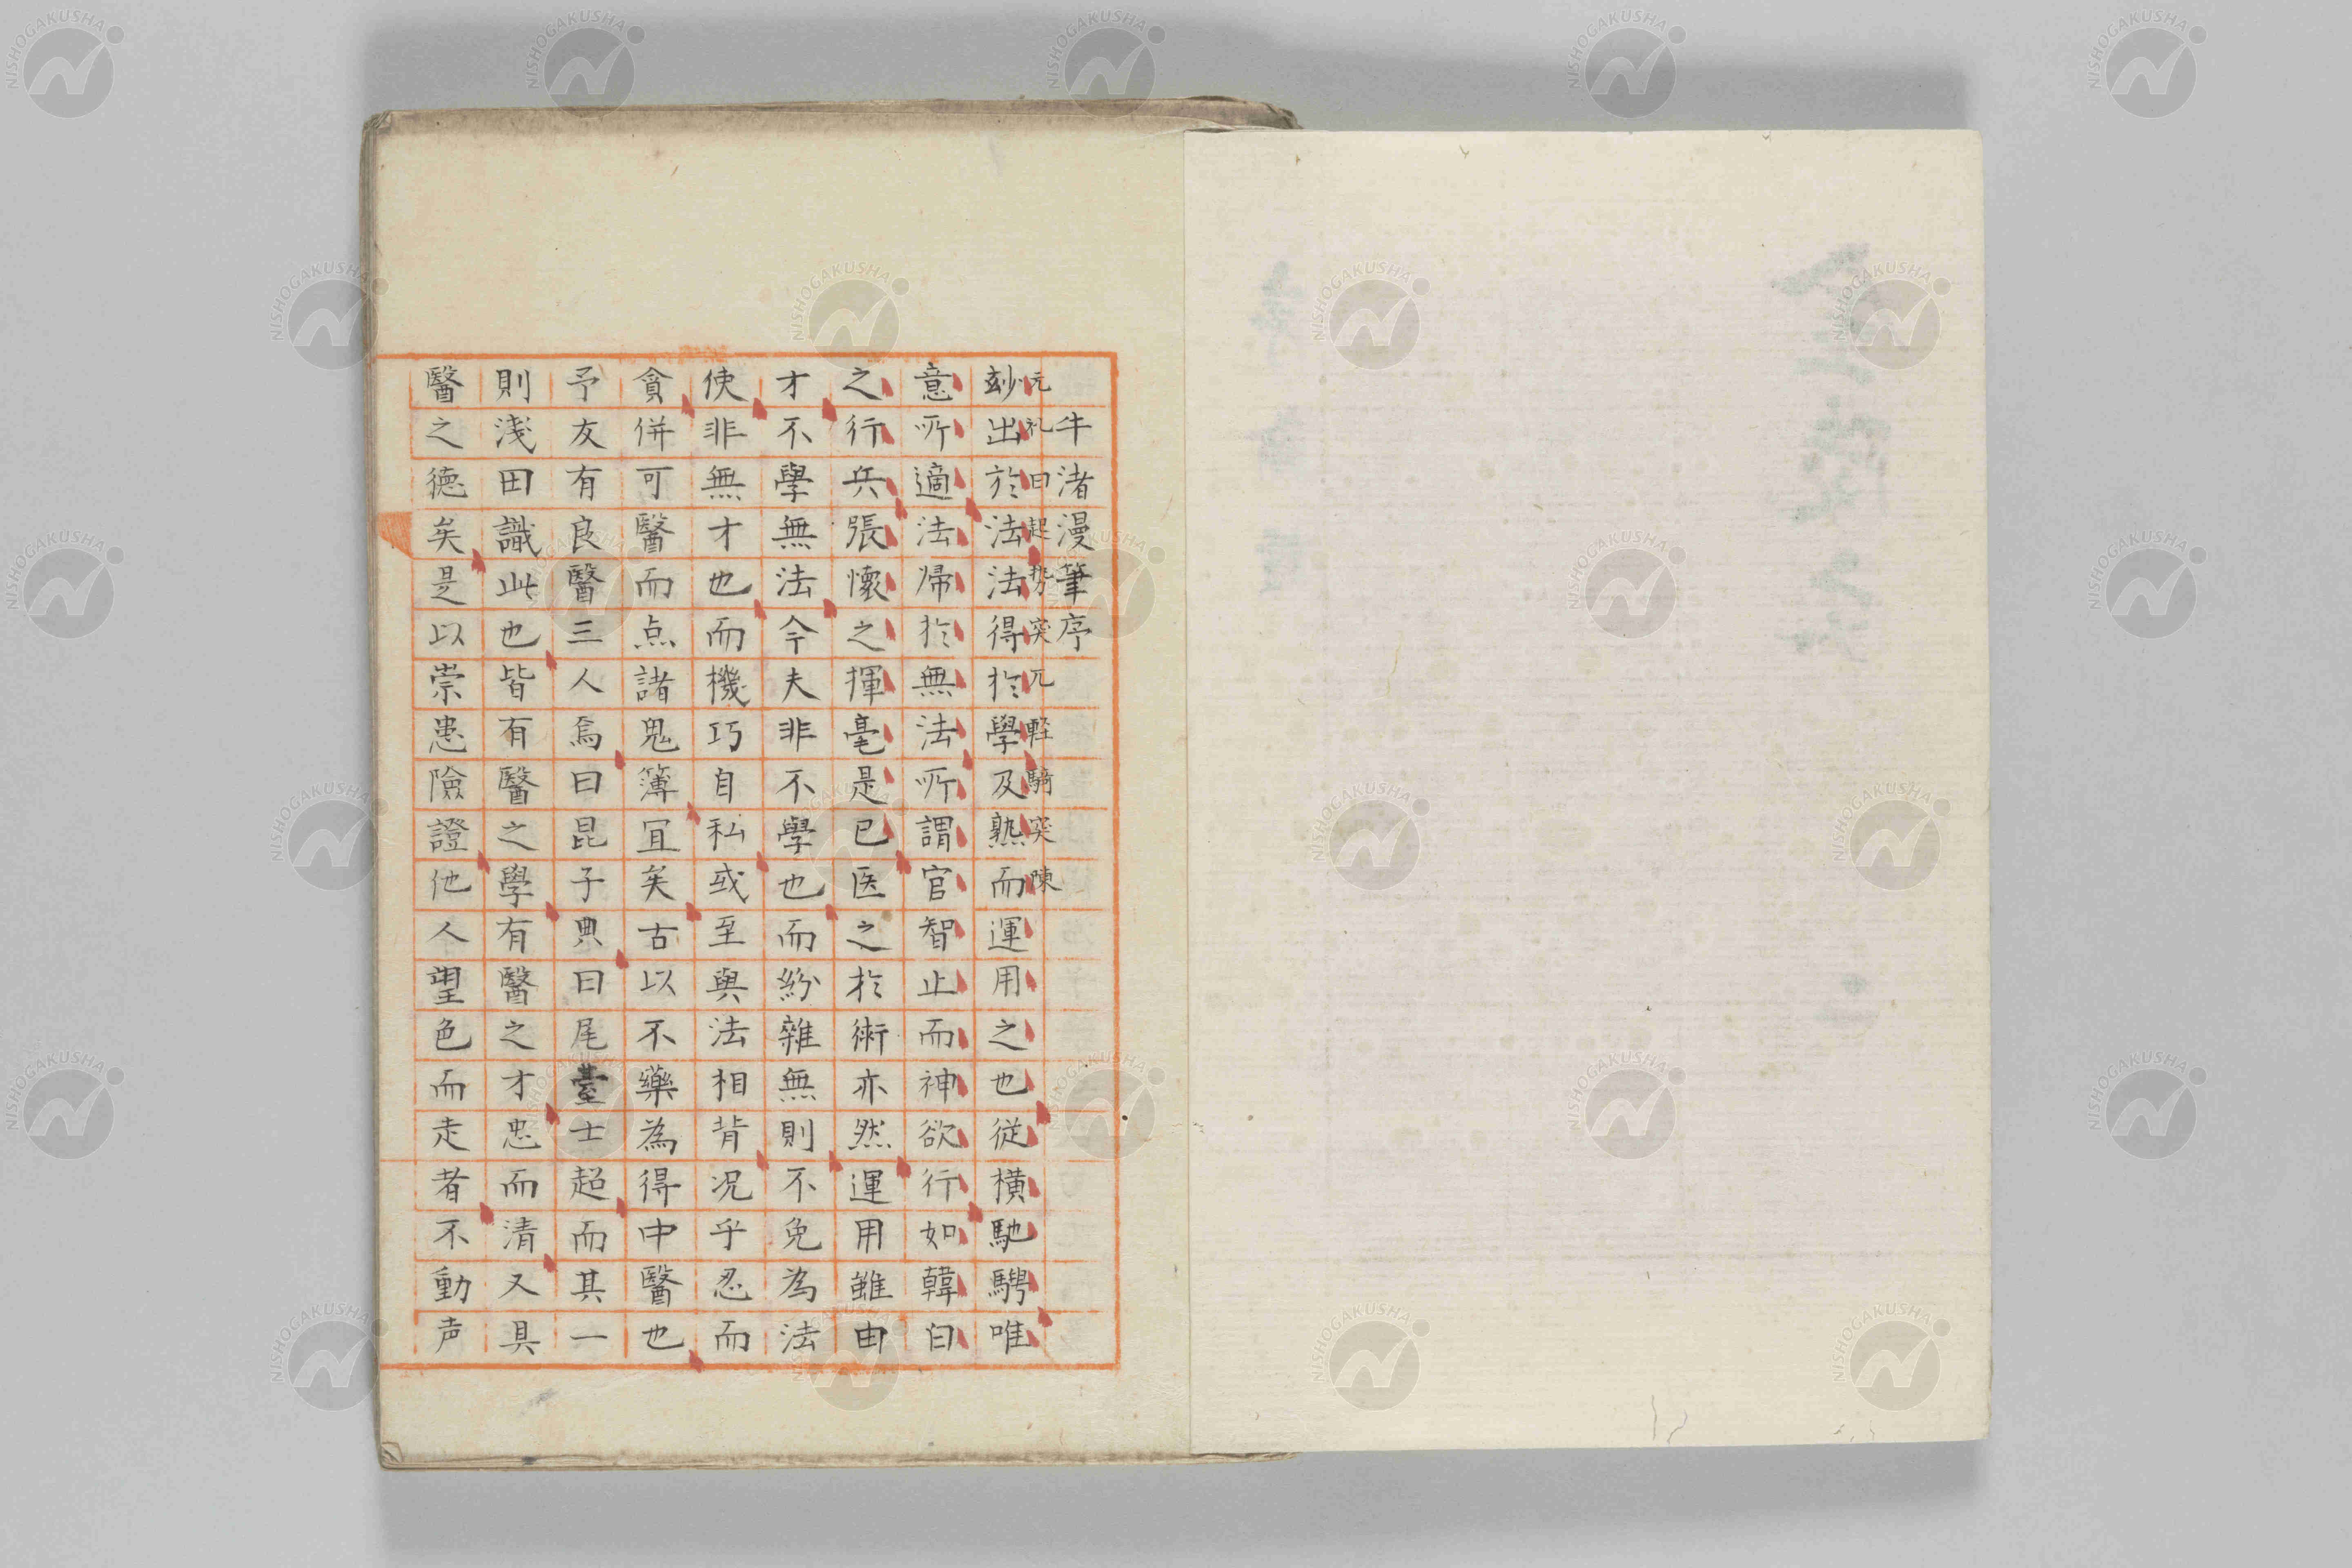 牛渚漫筆序
元礼曰起勢突兀軽騎突陳
玅出於法法得於學及熟而運用之也從橫馳騁唯
意所適法帰於無法所謂官智止而神欲行如韓白
之行兵張懷之揮毫是已医之於術亦然運用雖由
才不學無法今夫非不學也而紛雜無則不免為法
使非無才也而機巧自私或至與法相背况乎忍而
貪併可醫而点諸鬼簿冝矣古以不藥為得中醫也
予友有良醫三人焉曰昆子典曰尾臺士超而其一
則淺田識此也皆有醫之學有醫之才忠而清又具
醫之德矣是以崇患險證他人望色而走者不動声